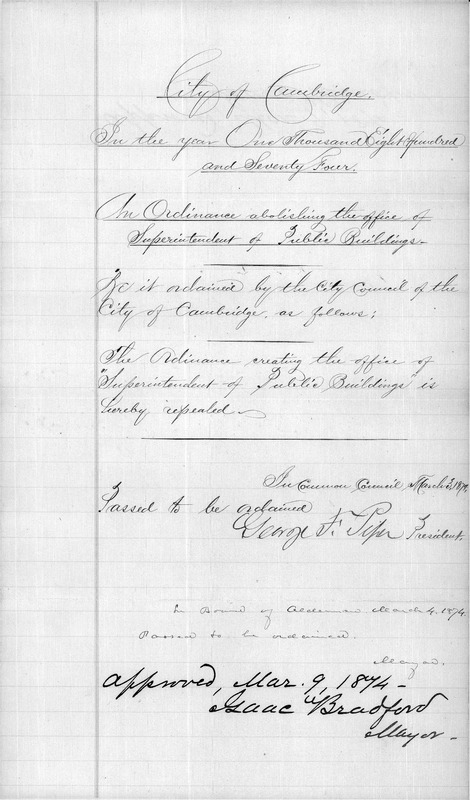 City of Cambridge.
In the year One Thousand Eight Hundred
and Seventy Four.
An Ordinance abolishing the office of
Superintendent of Public Buildings.
Be it ordained by the City Council of the
City of Cambridge, as follows;
The Ordinance creating the office of
"Superintendent of Public Buildings" is
hereby repealed
In Common Council, March 3, 1874
Passed to be ordained
George F. Piper President.
In Board of Aldermen March 4. 1874.
Passed to be ordained.
Mayor.
Approved, Mar. 9, 1874 –
Isaac Bradford
Mayor –